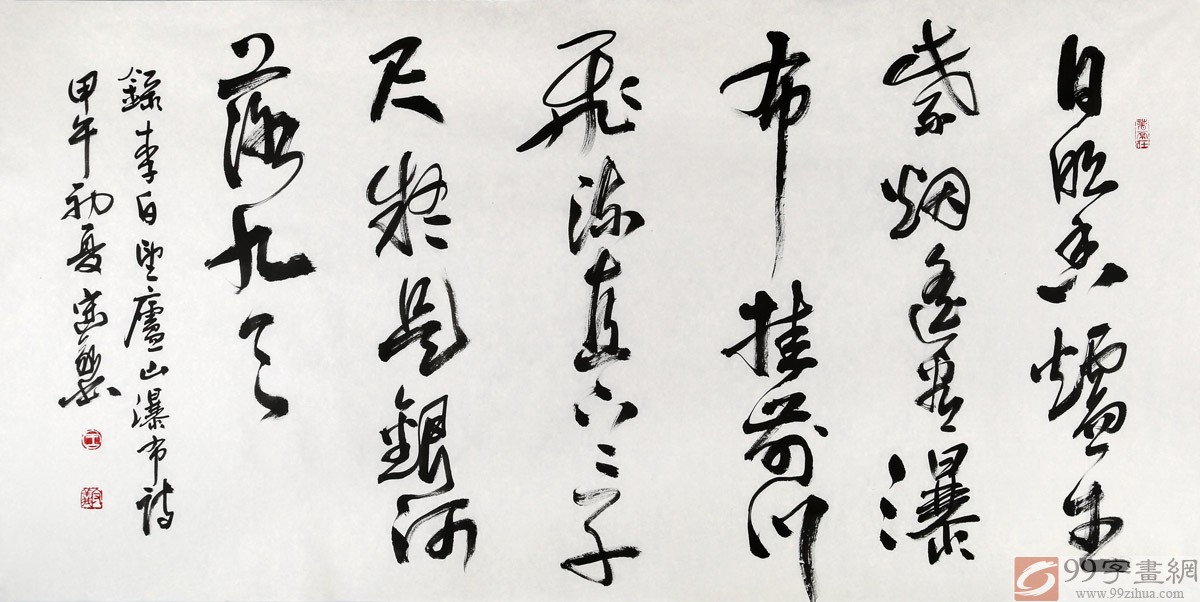 日照香爐生
紫烟遙看瀑
布挂前川
飛流直下三千
尺疑是銀河
落九天
錄李白望廬山瀑布詩
甲午初夏
99字畫網
www.99zihua.com